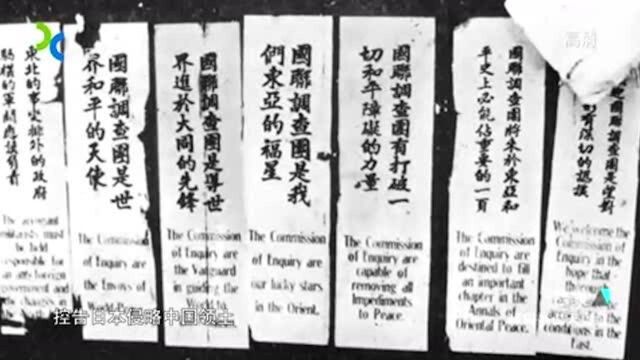 高清
東北的事變排外的政府
的軍閥應該負責
The
militarists must
be held
responsible for
an anti-foreign
government and
the changes in
國聯調查團是世
界和平的天使
The Commission
of Enquiry are
the Envoys of
World
國聯調查團是導世
界進於大同的先鋒
The Commission
of Enquiry are
the Vanguard
in guiding the
World to
國聯調查團是我
們東亞的福星
The Commission
of Enquiry are
our lucky stars
in the Orient.
國聯調查團有打破一
切和平障礙的力量
The Commission
of Enquiry are
capable of
removing all
Impediments
to Peace.
國聯調查團將來於東亞和
平史上必能佔重要的一頁
The Commission
of Enquiry are
destined to fill
an important
chapter in the
Annals of
Oriental Peace.
國聯調查團是望對
有深切的認
We welcome the
Commission of
Enquiry in the
hope that
thorough
to the
conditions in the
East.
控告日本侵略中国领土